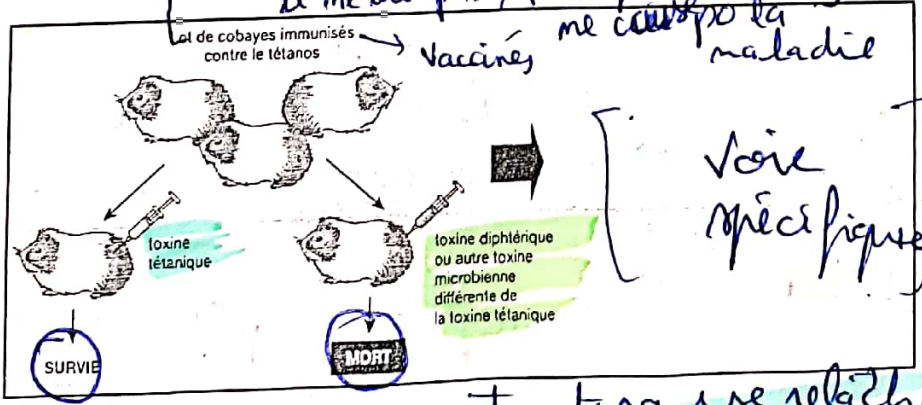 Lot de cobayes immunisés
contre le tétanos
Vaccinés
me
la
maladie
toxine
tétanique
toxine diphtérique
ou autre toxine
microbienne
différente de
la toxine tétanique
Voie
spécifique
SURVIE
MORT